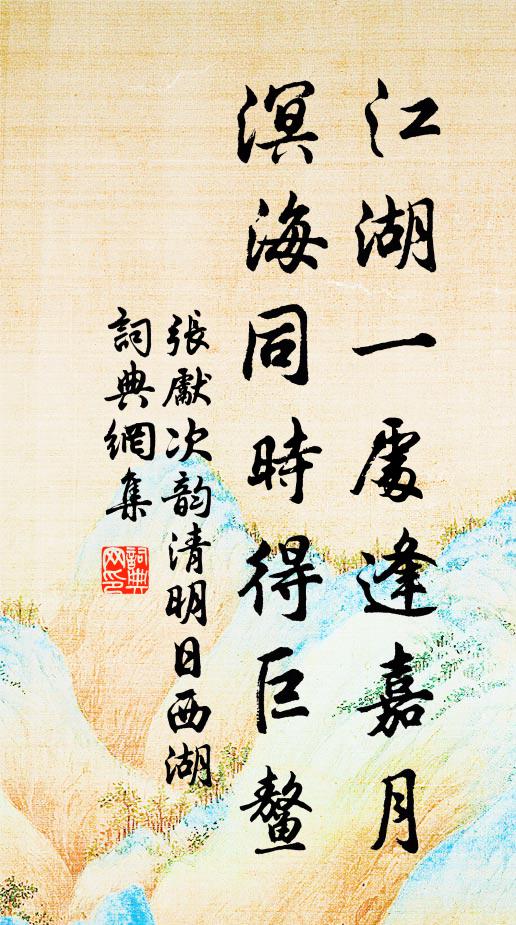 江湖一處逢嘉月
溟海同時得巨鰲
張獻次韵清明日西湖
詞典網集
詞典網印